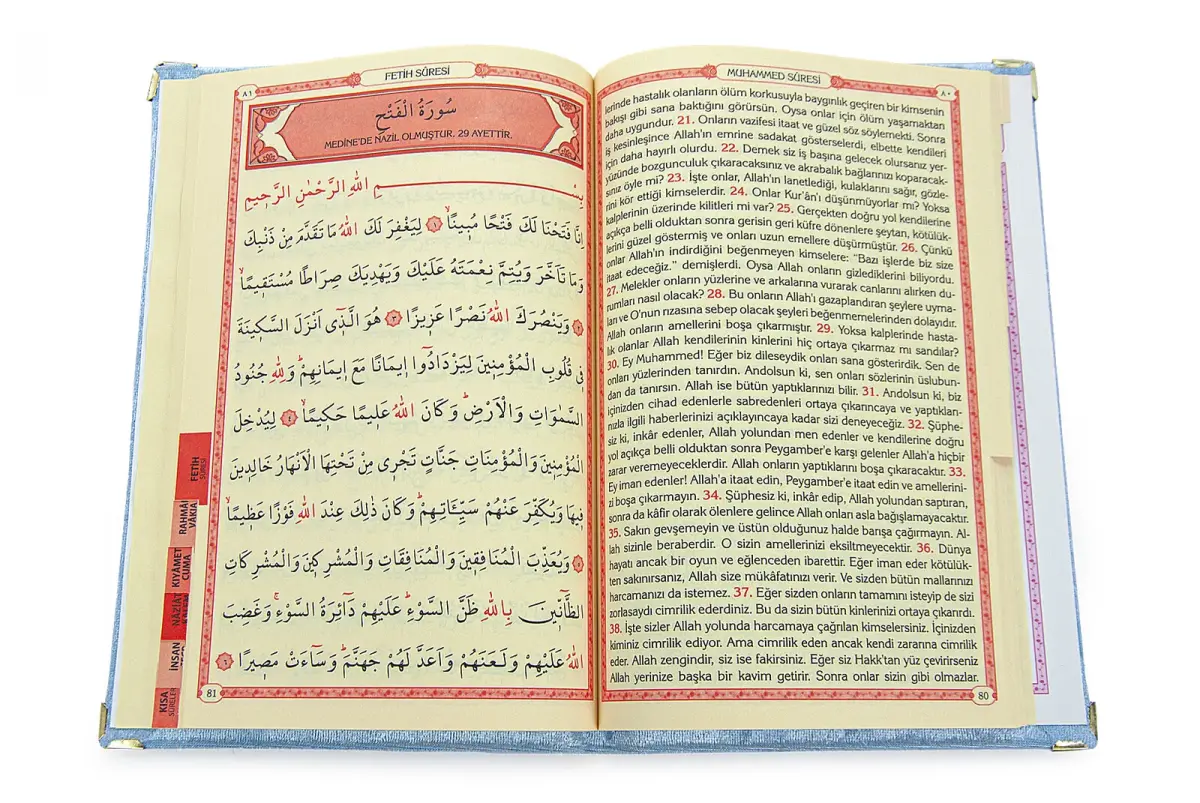 MUHAMMED SÛRESİ
٨٠
lerinde hastalık olanların ölüm korkusuyla baygınlık geçiren bir kimsenin
bakışı gibi sana baktığını görürsün. Oysa onlar için ölüm yaşamaktan
daha uygundur. 21. Onların vazifesi itaat ve güzel söz söylemekti. Sonra
iş kesinleşince Allah'ın emrine sadakat gösterselerdi, elbette kendileri
için daha hayırlı olurdu. 22. Demek siz iş başına gelecek olursanız yer-
yüzünde bozgunculuk çıkaracaksınız ve akrabalık bağlarınızı koparacak-
sınız öyle mi? 23. İşte onlar, Allah'ın lanetlediği, kulaklarını sağır, gözle-
rini kör ettiği kimselerdir. 24. Onlar Kur'ân'ı düşünmüyorlar mı? Yoksa
kalplerinin üzerinde kilitleri mi var? 25. Gerçekten doğru yol kendilerine
açıkça belli olduktan sonra gerisin geri küfre dönenlere şeytan, kötülük-
lerini güzel göstermiş ve onları uzun emellere düşürmüştür. 26. Çünkü
onlar Allah'ın indirdiğini beğenmeyen kimselere: "Bazı işlerde biz size
itaat edeceğiz." demişlerdi. Oysa Allah onların gizlediklerini biliyordu.
27. Melekler onların yüzlerine ve arkalarına vurarak canlarını alırken du-
rumları nasıl olacak? 28. Bu onların Allah'ı gazaplandıran şeylere uyma-
ları ve O'nun rızasına sebep olacak şeyleri beğenmemelerinden dolayıdır.
Allah onların amellerini boşa çıkarmıştır. 29. Yoksa kalplerinde hasta-
lık olanlar Allah kendilerinin kinlerini hiç ortaya çıkarmaz mı sandılar?
30. Ey Muhammed! Eğer biz dileseydik onları sana gösterirdik. Sen de
onları yüzlerinden tanırdın. Andolsun ki, sen onları sözlerinin üslubun-
dan da tanırsın. Allah ise bütün yaptıklarınızı bilir. 31. Andolsun ki, biz
içinizden cihad edenlerle sabredenleri ortaya çıkarıncaya ve yaptıkları-
nızla ilgili haberlerinizi açıklayıncaya kadar sizi deneyeceğiz. 32. Şüphe-
siz ki, inkâr edenler, Allah yolundan men edenler ve kendilerine doğru
yol açıkça belli olduktan sonra Peygamber'e karşı gelenler Allah'a hiçbir
zarar veremeyeceklerdir. Allah onların yaptıklarını boşa çıkaracaktır. 33.
Ey iman edenler! Allah'a itaat edin, Peygambere itaat edin ve amellerini-
zi boşa çıkarmayın. 34. Şüphesiz ki, inkâr edip, Allah yolundan saptıran,
sonra da kâfir olarak ölenlere gelince Allah onları asla bağışlamayacaktır.
35. Sakın gevşemeyin ve üstün olduğunuz halde barışa çağırmayın. Al-
lah sizinle beraberdir. O sizin amellerinizi eksiltmeyecektir. 36. Dünya
hayatı ancak bir oyun ve eğlenceden ibarettir. Eğer iman eder kötülük-
ten sakınırsanız, Allah size mükâfatınızı verir. Ve sizden bütün mallarınızı
harcamanızı da istemez. 37. Eğer sizden onların tamamını isteyip de sizi
zorlasaydı cimrilik ederdiniz. Bu da sizin bütün kinlerinizi ortaya çıkarırdı.
38. İşte sizler Allah yolunda harcamaya çağrılan kimselersiniz. İçinizden
kiminiz cimrilik ediyor. Ama cimrilik eden ancak kendi zararına cimrilik
eder. Allah zengindir, siz ise fakirsiniz. Eğer siz Hakk'tan yüz çevirirseniz
Allah yerinize başka bir kavim getirir. Sonra onlar sizin gibi olmazlar.
80
FETİH SÛRESİ
٨١
سُورَةُ الْفَتْحِ
MEDİNE'DE NAZİL OLMUŞTUR. 29 AYETTİR.
بِسْمِ اللهِ الرَّحْمٰنِ الرَّحِيمِ
اِنَّا فَتَحْنَا لَكَ فَتْحًا مُبِينًاۙ ١ لِيَغْفِرَ لَكَ اللهُ مَا تَقَدَّمَ مِنْ ذَنْبِكَ
وَمَا تَاَخَّرَ وَيُتِمَّ نِعْمَتَهُ عَلَيْكَ وَيَهْدِيَكَ صِرَاطًا مُسْتَقِيمًاۙ
٢ وَيَنْصُرَكَ اللهُ نَصْرًا عَزِيزًا ٣ هُوَ الَّذ۪ٓي اَنْزَلَ السَّكِينَةَ
فِي قُلُوبِ الْمُؤْمِنِينَ لِيَزْدَادُٓوا اِيمَانًا مَعَ اِيمَانِهِمْۜ وَلِلّٰهِ جُنُودُ
السَّمٰوَاتِ وَالْاَرْضِۜ وَكَانَ اللهُ عَلِيمًا حَكِيمًاۙ ٤ لِيُدْخِلَ
الْمُؤْمِنِينَ وَالْمُؤْمِنَاتِ جَنَّاتٍ تَجْرِي مِنْ تَحْتِهَا الْاَنْهَارُ خَالِدِينَ
فِيهَا وَيُكَفِّرَ عَنْهُمْ سَيِّـَٔاتِهِمْۜ وَكَانَ ذٰلِكَ عِنْدَ اللهِ فَوْزًا عَظِيمًاۙ
٥ وَيُعَذِّبَ الْمُنَافِقِينَ وَالْمُنَافِقَاتِ وَالْمُشْرِكِينَ وَالْمُشْرِكَاتِ
الظَّٓانِّينَ بِاللهِ ظَنَّ السَّوْءِۜ عَلَيْهِمْ دَٓائِرَةُ السَّوْءِۚ وَغَضِبَ
اللهُ عَلَيْهِمْ وَلَعَنَهُمْ وَاَعَدَّ لَهُمْ جَهَنَّمَۜ وَسَٓاءَتْ مَصِيرًا ٦
81
FETİH
SÛRESİ
RAHMAN
VÂKIA
KIYÂMET
CUMA
NÂZİÂT
İNSAN
KISA
SÛRELER